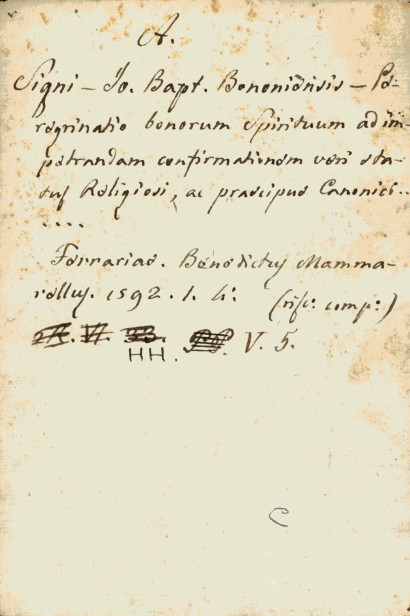 A.
Signi - Jo. Bapt. Bononiensis - Pe-
regrinatio bonorum Spirituum ad im-
petrandam confirmationem veri sta-
tus Religiosi, ac praecipue Canonici..
....
Ferrariae. Benedictus Mamma-
rellus. 1592. 1. 4:
(risc: comp:)
V. 5.
HH.
C